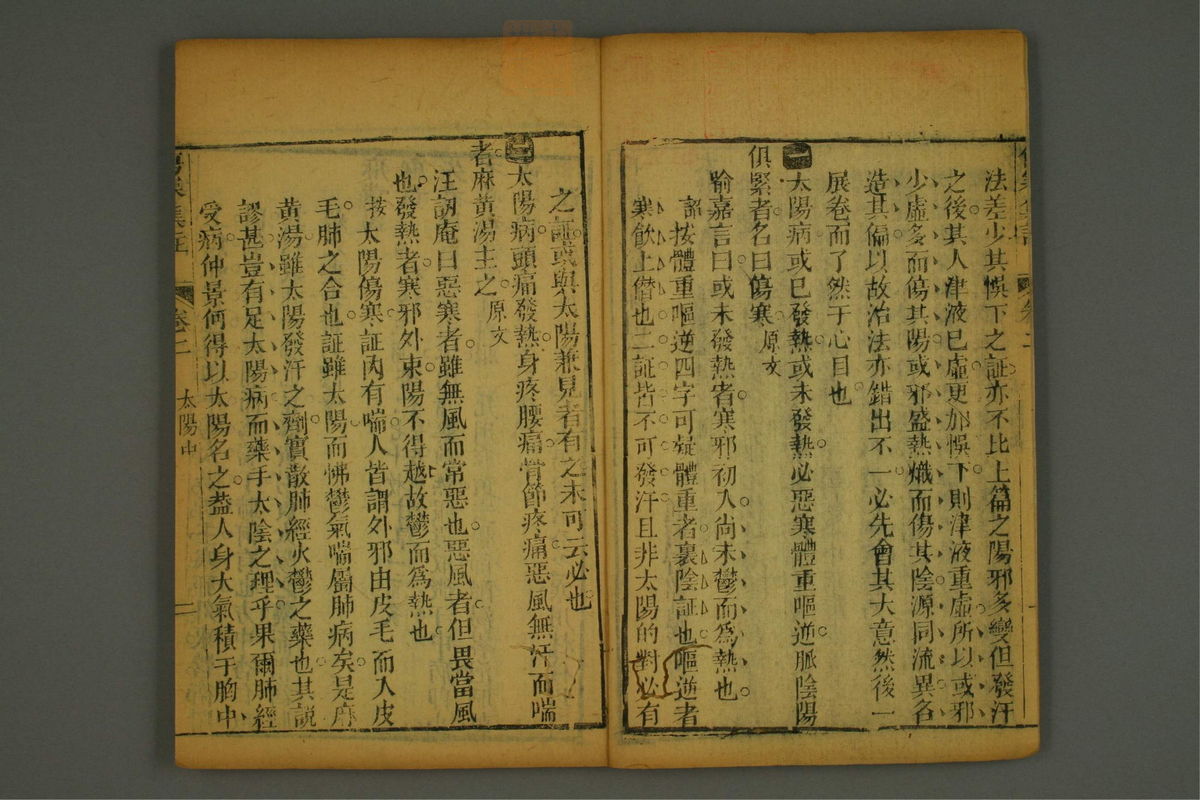 法差少其悞下之証亦不比上篇之陽邪多變但發汗
之後其人津液已虛更加悞下則津液重虛所以或邪
少虛多而傷其陽或邪盛熱熾而傷其陰源同流異各
造其偏以故治法亦錯出不一必先會其大意然後一
展卷而了然于心目也
一
太陽病或已發熱或未發熱必惡寒體重嘔逆脈陰陽
俱緊者名曰傷寒 原文
喻嘉言曰或未發熱者寒邪初入尚未鬱而為熱也
按體重嘔逆四字可疑體重者裏陰証也嘔逆者
寒飲上僭也二証皆不可發汗且非太陽的對必有
之証或與太陽兼見者有之未可云必也
二
太陽病頭痛發熱身疼腰痛骨節疼痛惡風無汗而喘
者麻黃湯主之 原文
汪訒庵曰惡寒者雖無風而常惡也惡風者但畏當風
也發熱者寒邪外束陽不得越故鬱而為熱也
按太陽傷寒証內有喘人皆謂外邪由皮毛而入皮
毛肺之合也証雖太陽而怫鬱氣喘屬肺病矣是麻
黃湯雖太陽發汗之劑實散肺經火鬱之藥也其說
謬甚豈有足太陽病而藥手太陰之理乎果爾肺經
受病仲景何得以太陽名之蓋人身大氣積于胸中
集注 卷二 太陽中